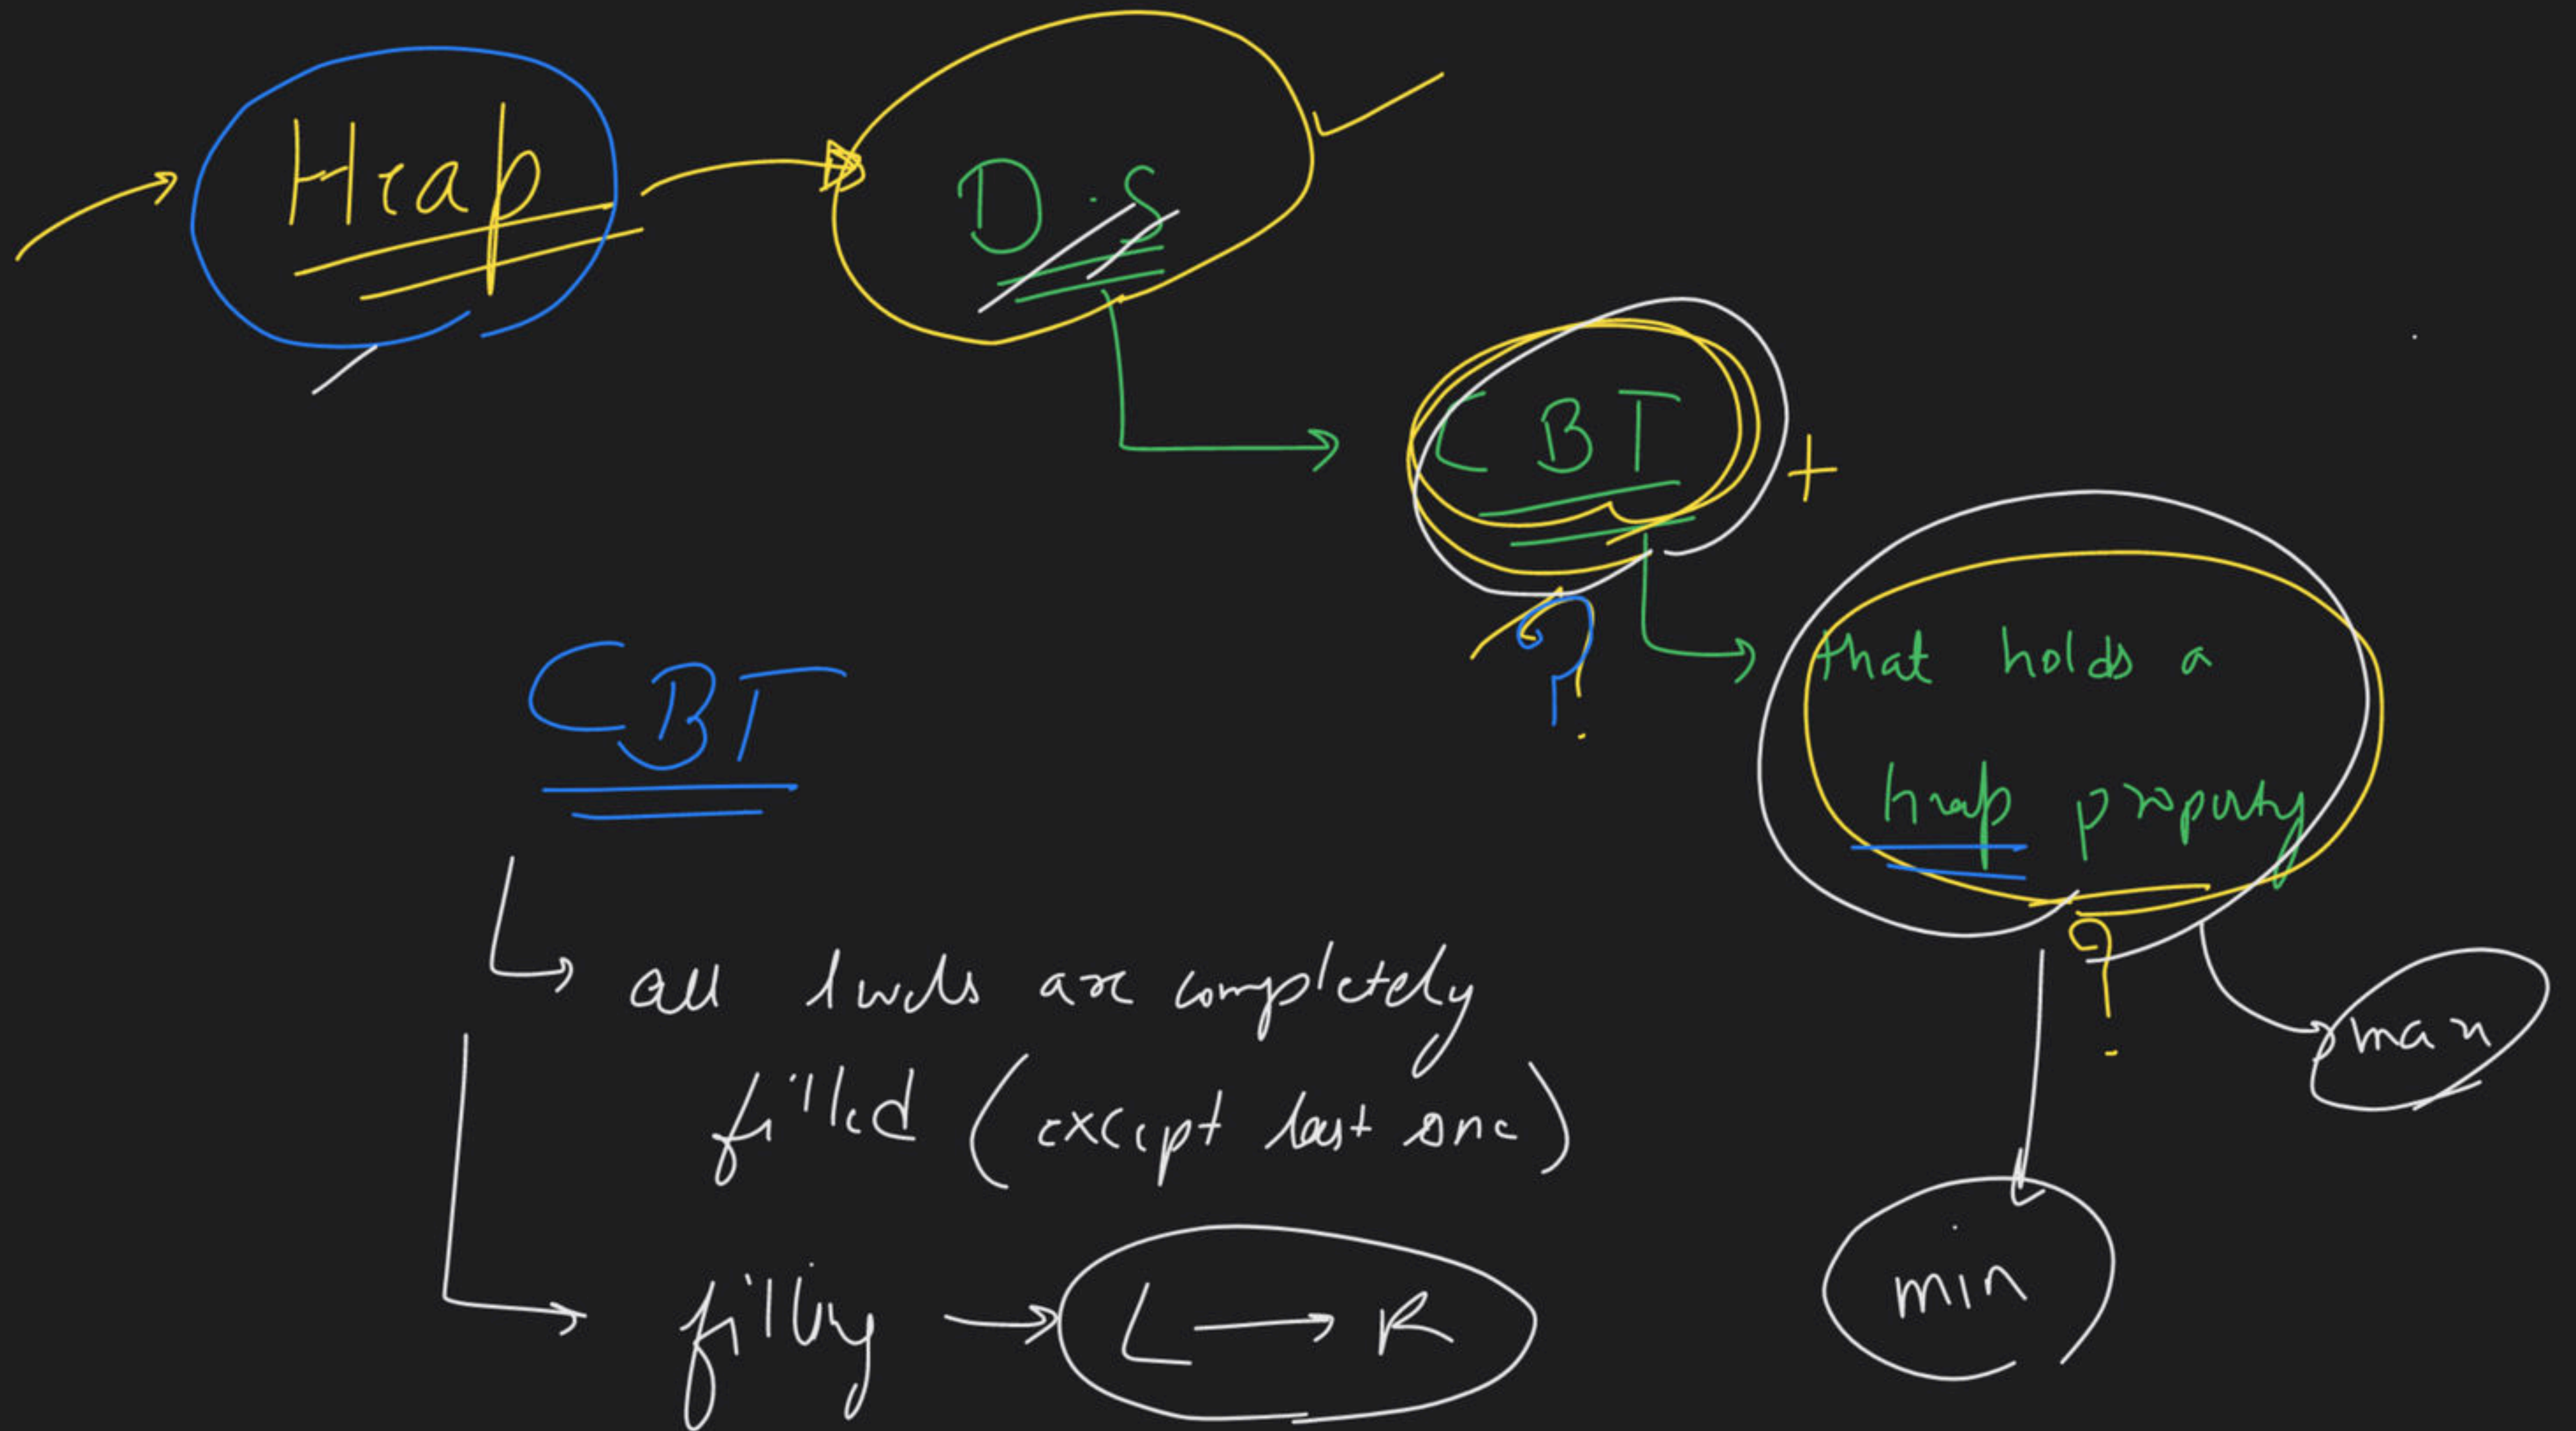 Heap
D.S
CBT
+
?
that holds a
heap property
?
max
min
CBT
all levels are completely
filled (except last one)
filling → L → R